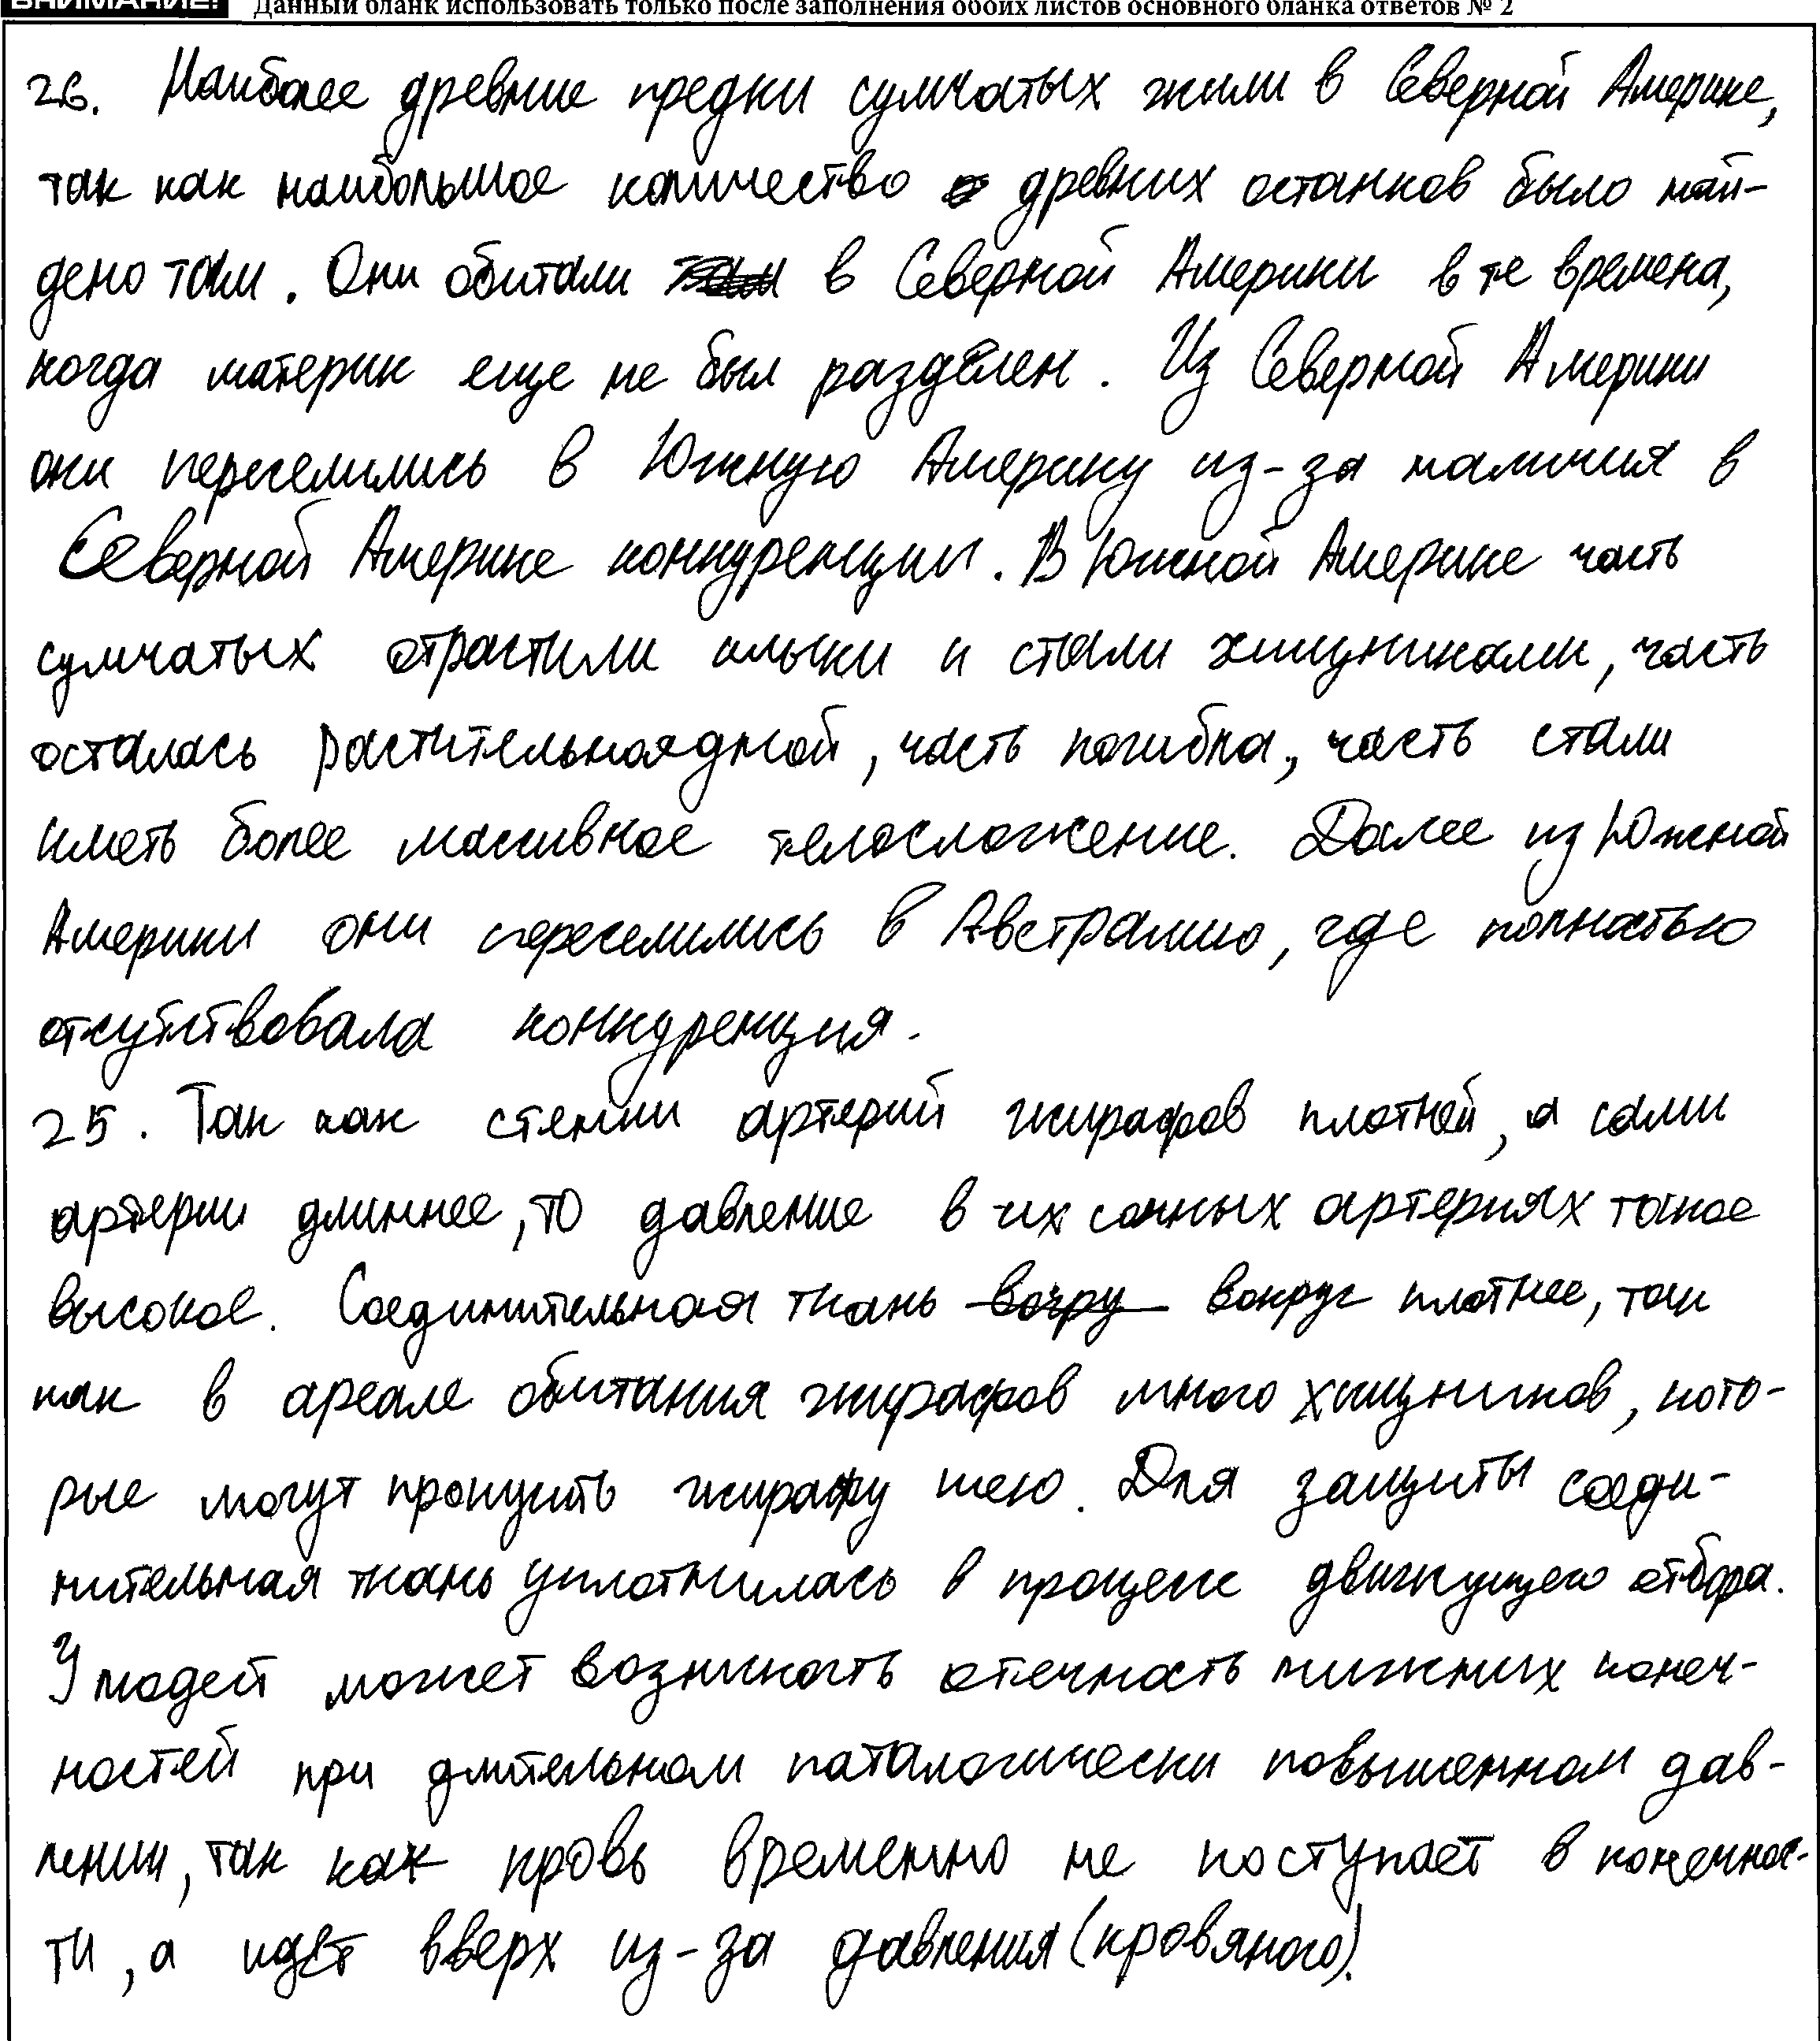 ВНИМАНИЕ! Данный бланк использовать только после заполнения обоих листов основного бланка ответов № 2
26. Наиболее древние предки сумчатых жили в Северной Америке,
так как наибольшое количество древних останков было най-
дено там. Они обитали в Северной Америки в те времена,
когда материк еще не был разделен. Из Северной Америки
они переселились в Южную Америку из-за наличия в
Северной Америке конкуренции. В Южной Америке часть
сумчатых отрастили клыки и стали хищниками, часть
осталась растительноядной, часть погибла, часть стали
иметь более массивное телосложение. Далее из Южной
Америки они переселились в Австралию, где полностью
отсутствовала конкуренция.
25. Так как стенки артерий жирафов плотней, а сами
артерии длиннее, то давление в их сонных артериях такое
высокое. Соединительная ткань вокруг плотнее, так
как в ареале обитания жирафов много хищников, кото-
рые могут прокусить жирафу шею. Для защиты соеди-
нительная ткань уплотнилась в процессе движущего отбора.
У людей может возникать отечность нижних конеч-
ностей при длительном паталогически повышенном дав-
лении, так как кровь временно не поступает в конечнос-
ти, а идет вверх из-за давления (кровяного).